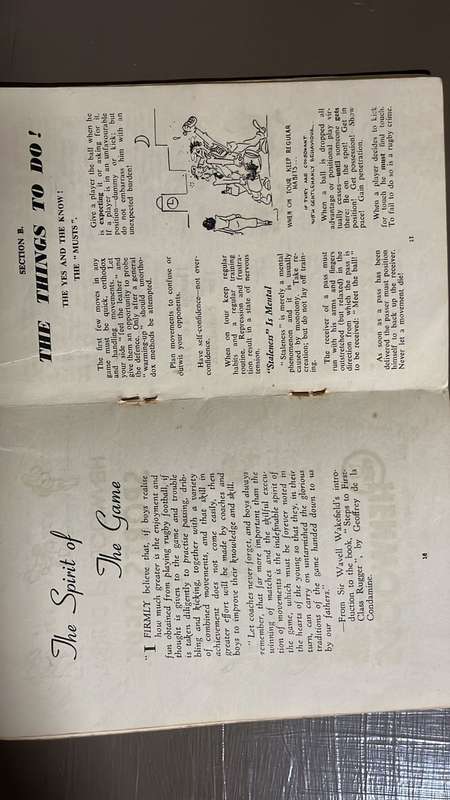 The Spirit of
The Game
"I FIRMLY believe that, if boys realise
how much greater is the enjoyment and
fun obtained from playing rugby football, if
thought is given to the game and trouble
is taken diligently to practise passing, drib-
bling and kicking, together with a variety
of combined movements, and that skill in
achievement does not come easily, then
greater effort will be made by coaches and
boys to improve their knowledge and skill.
"Let coaches never forget, and boys always
remember, that far more important than the
winning of matches and the skilful execu-
tion of movements is the indefinable spirit of
the game, which must be forever rooted in
the hearts of the young so that they, in their
turn, can carry on untarnished the glorious
traditions of the game handed down to us
by our fathers."
—From Sir Wavell Wakefield's intro-
duction to the book, "Steps to First-
Class Rugger", by Geoffrey de la
Condamine.
16
SECTION B.
THE THINGS TO DO!
THE YES AND THE KNOW!
THE "MUSTS".
The first few moves in any
game must be quick, orthodox
and handling movements. Let
your side "feel the leather" and
give them an opportunity to probe
the defence. Only after a general
"warming-up" should unortho-
dox methods be attempted.
Plan movements to confuse or
outwit your opponents.
Have self-confidence—not over-
confidence.
When on tour keep regular
habits and a regular training
routine. Repression and frustra-
tion result in a state of nervous
tension.
"Staleness" Is Mental
"Staleness" is merely a mental
phenomenon and it is usually
caused by monotony. Take re-
creation; but do not lay off train-
ing.
The receiver of a pass must
run with his arms and fingers
outstretched but relaxed in the
direction from which the pass is
to be received. "Meet the ball!"
As soon as a pass has been
delivered the passer must position
himself to back up the receiver.
Never let a movement die!
Give a player the ball when he
is expecting it or asking for it.
If a player is in an unfavourable
position, dummy or kick; but
do not embarrass him with an
unexpected burden!
WHEN ON TOUR KEEP REGULAR
HABITS...
IF THEY ARE CONSONANT
WITH GENTLEMANLY BEHAVIOUR.
When a ball is dropped all
advantage or positional play vir-
tually ceases until someone gets
there: Be on the spot! Get in
position! Get possession! Show
pace! Gain penetration.
When a player decides to kick
for touch he must find touch.
To fail to do so is a rugby crime.
17